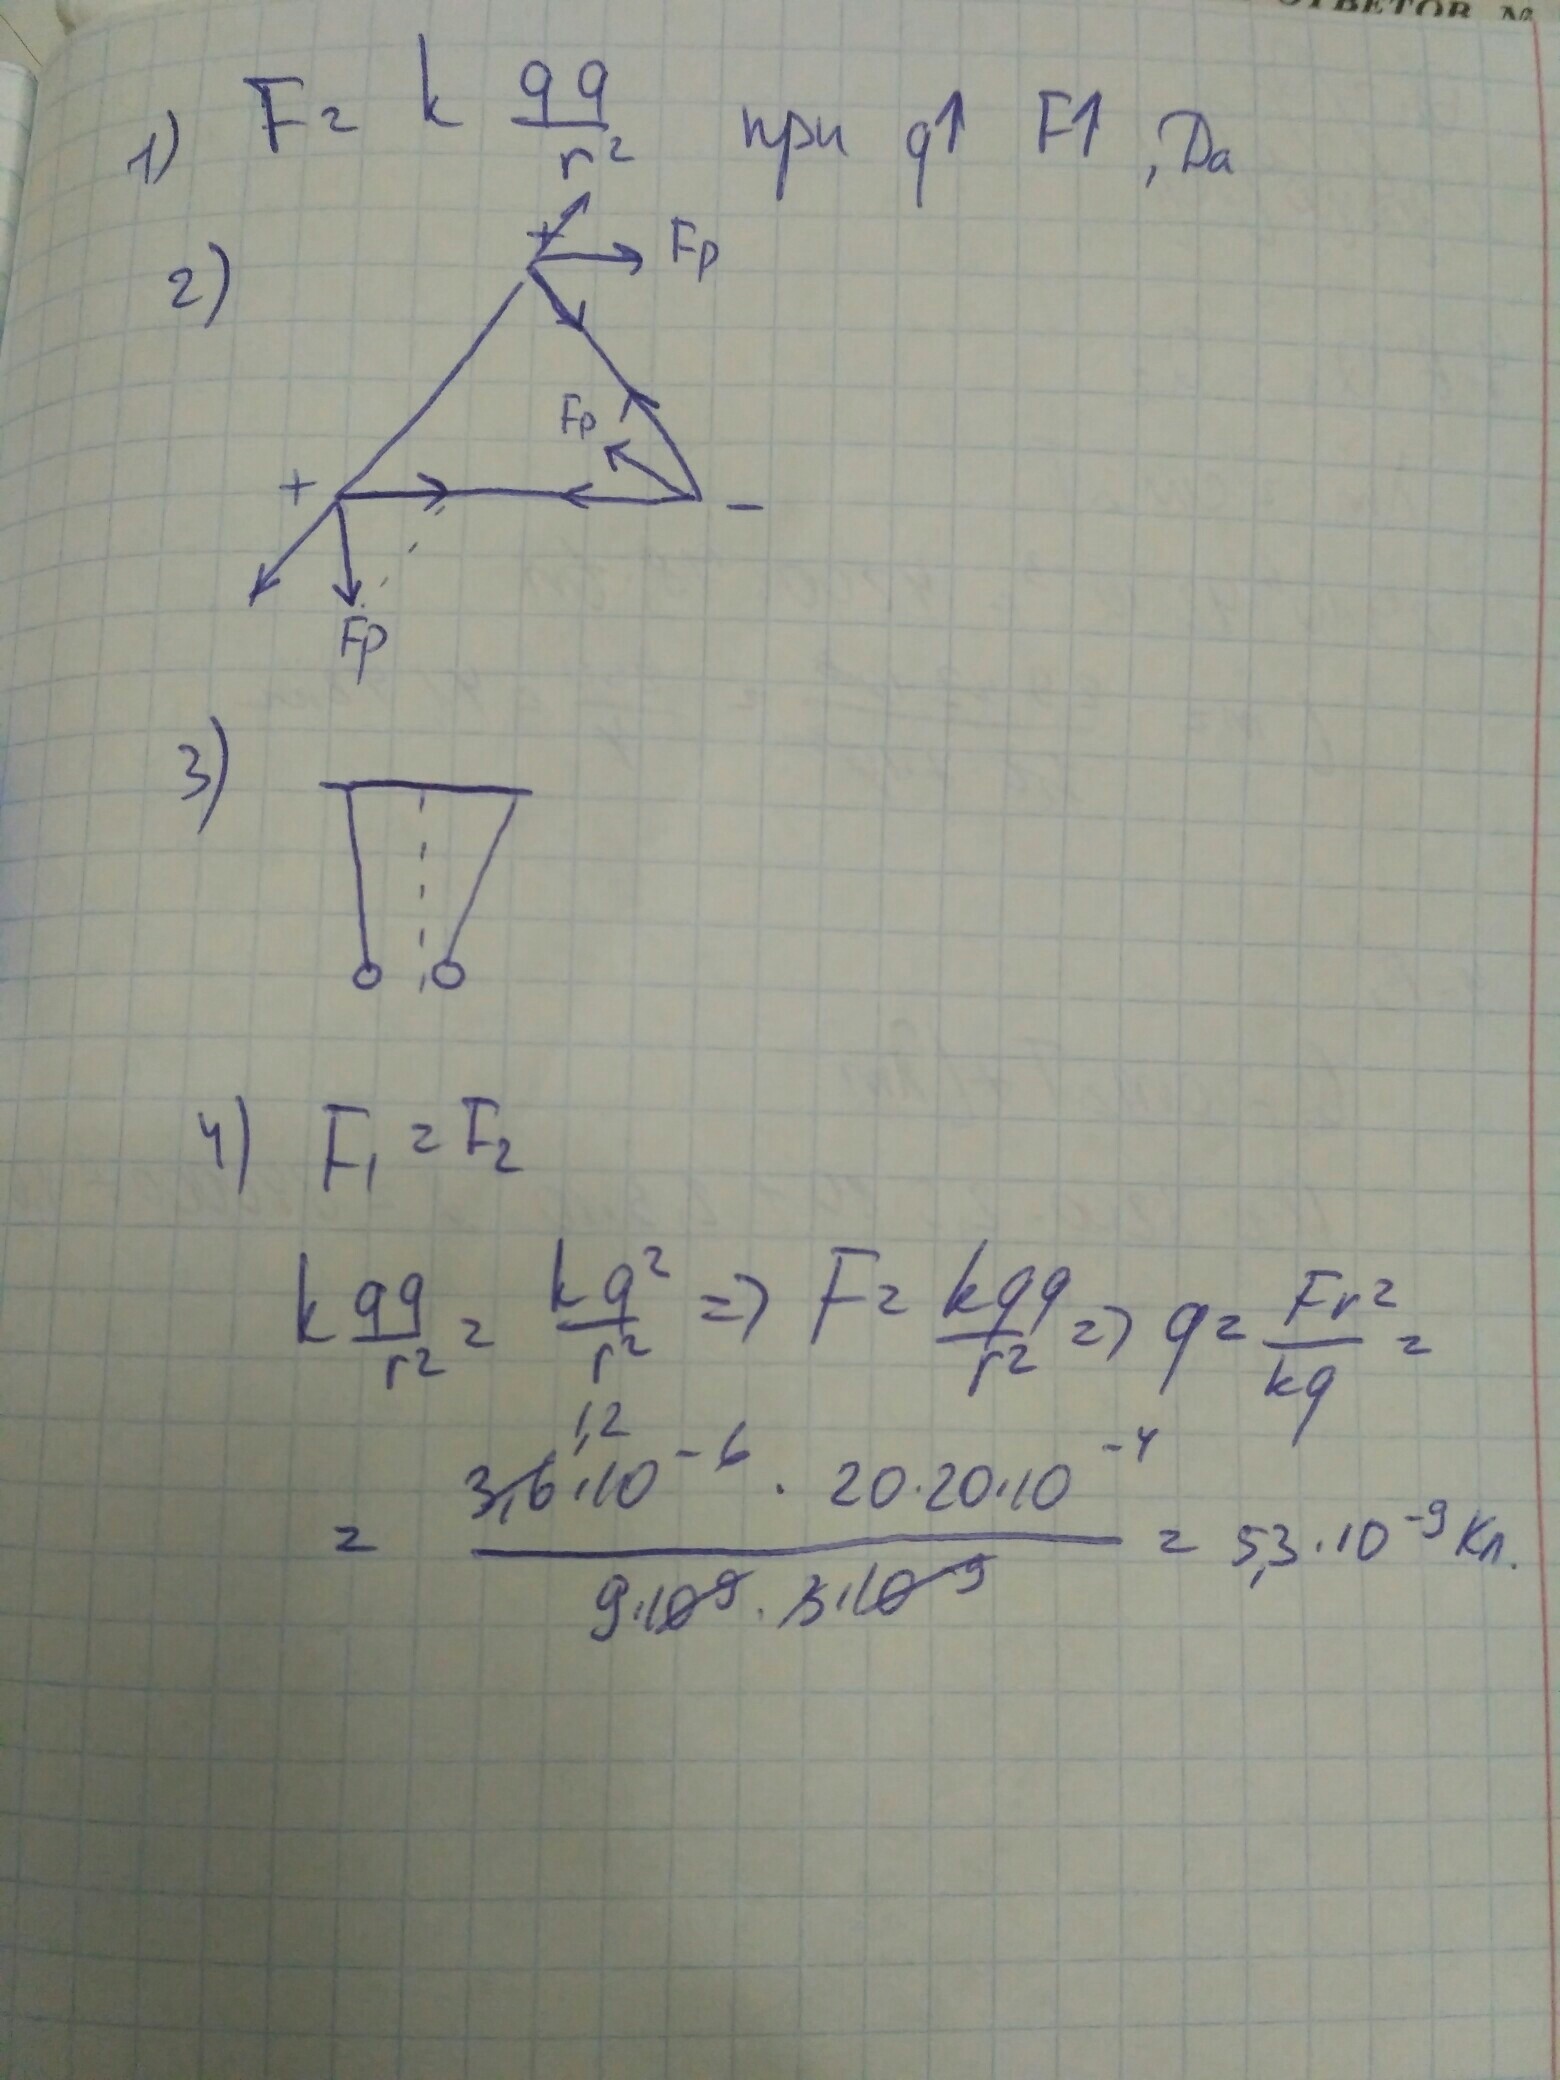 ОТВЕТОВ №
1) F = k qq/r² при q↑ F↑, Да
2)
+ Fp
Fp
+ -
Fp
3)
4) F₁ = F₂
k qq/r² = kq²/r² => F = kqq/r² => q = Fr²/kq =
1,2
= 3,6·10⁻⁶ · 20·20·10⁻⁴ / 9·10⁹ · 3·10⁻⁹ = 5,3·10⁻⁹ Кл.